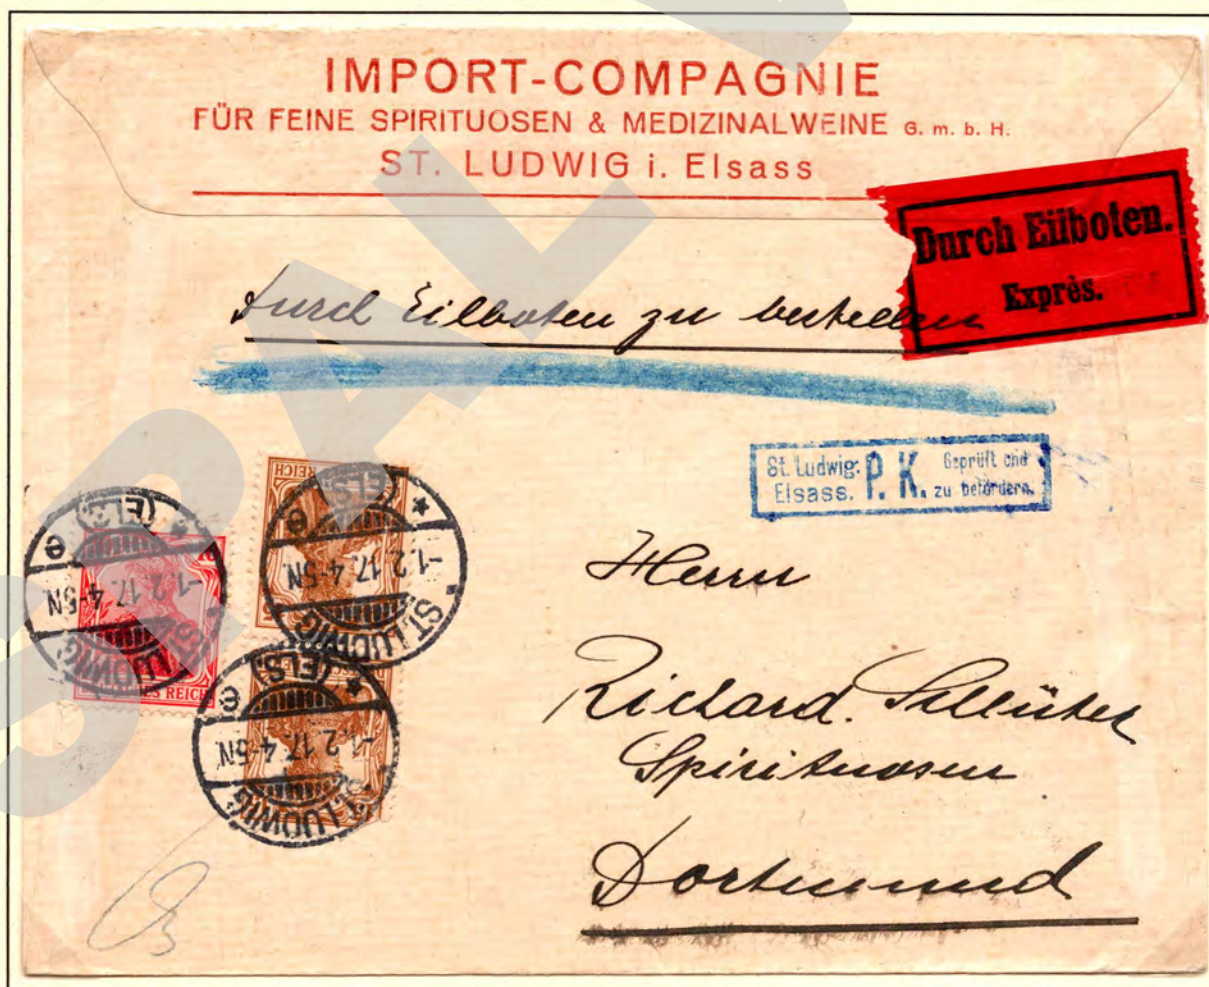 IMPORT-COMPAGNIE
FÜR FEINE SPIRITUOSEN & MEDIZINALWEINE G. m. b. H.
ST. LUDWIG i. Elsass
Durch Eilboten.
Exprès.
Durch Eilboten zu bestellen
St. Ludwig: P. K. Geprüft und
Elsass. zu befördern.
REICH
ST. LUDWIG (ELS.)
-1.2.17. 4-5N.
e
10
REICH
ST. LUDWIG (ELS.)
-1.2.17. 4-5N.
e
ST. LUDWIG (ELS.)
-1.2.17. 4-5N.
e
Herrn
Richard. Schlüter
Spirituosen
Dortmund